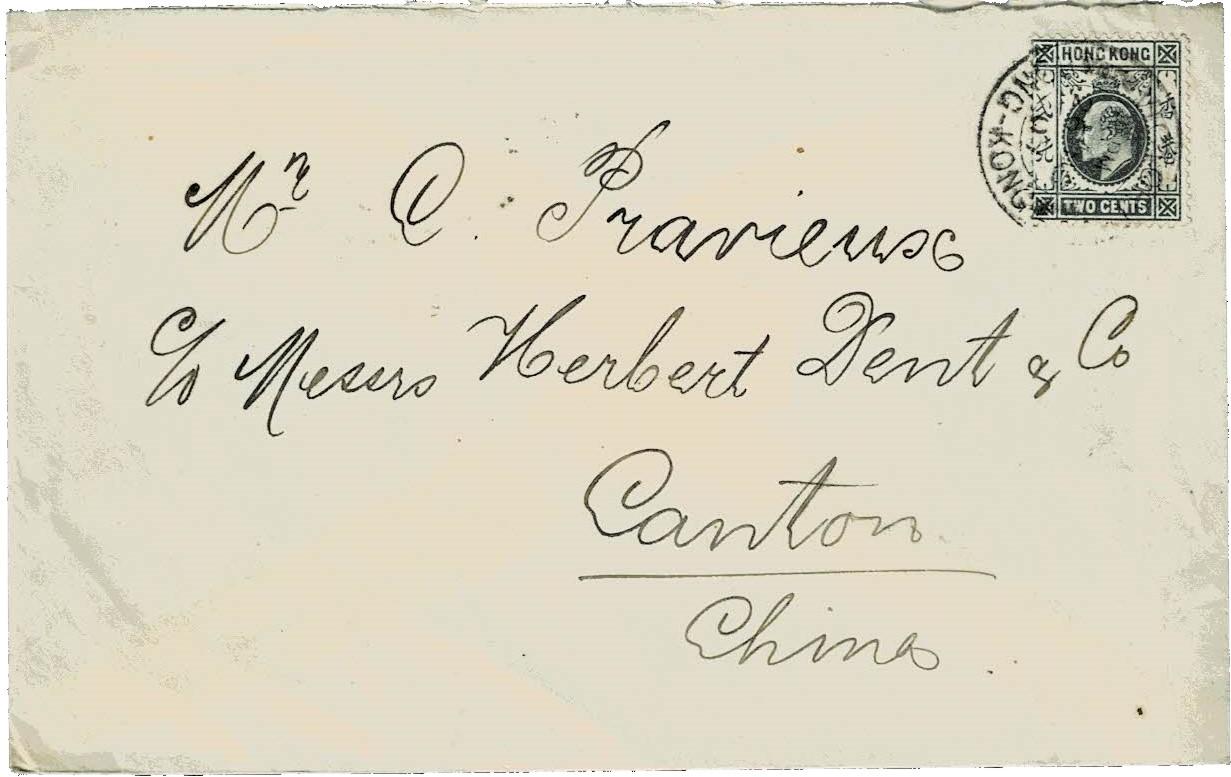 HONG KONG
TWO CENTS
NG-KONG
Mr C. Pravieux
C/o Messrs Herbert Dent & Co
Canton
China